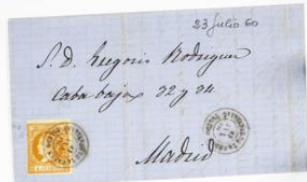 23 Julio 60
S. D. Gregorio Rodriguez
Caba baja 32 y 34
Madrid